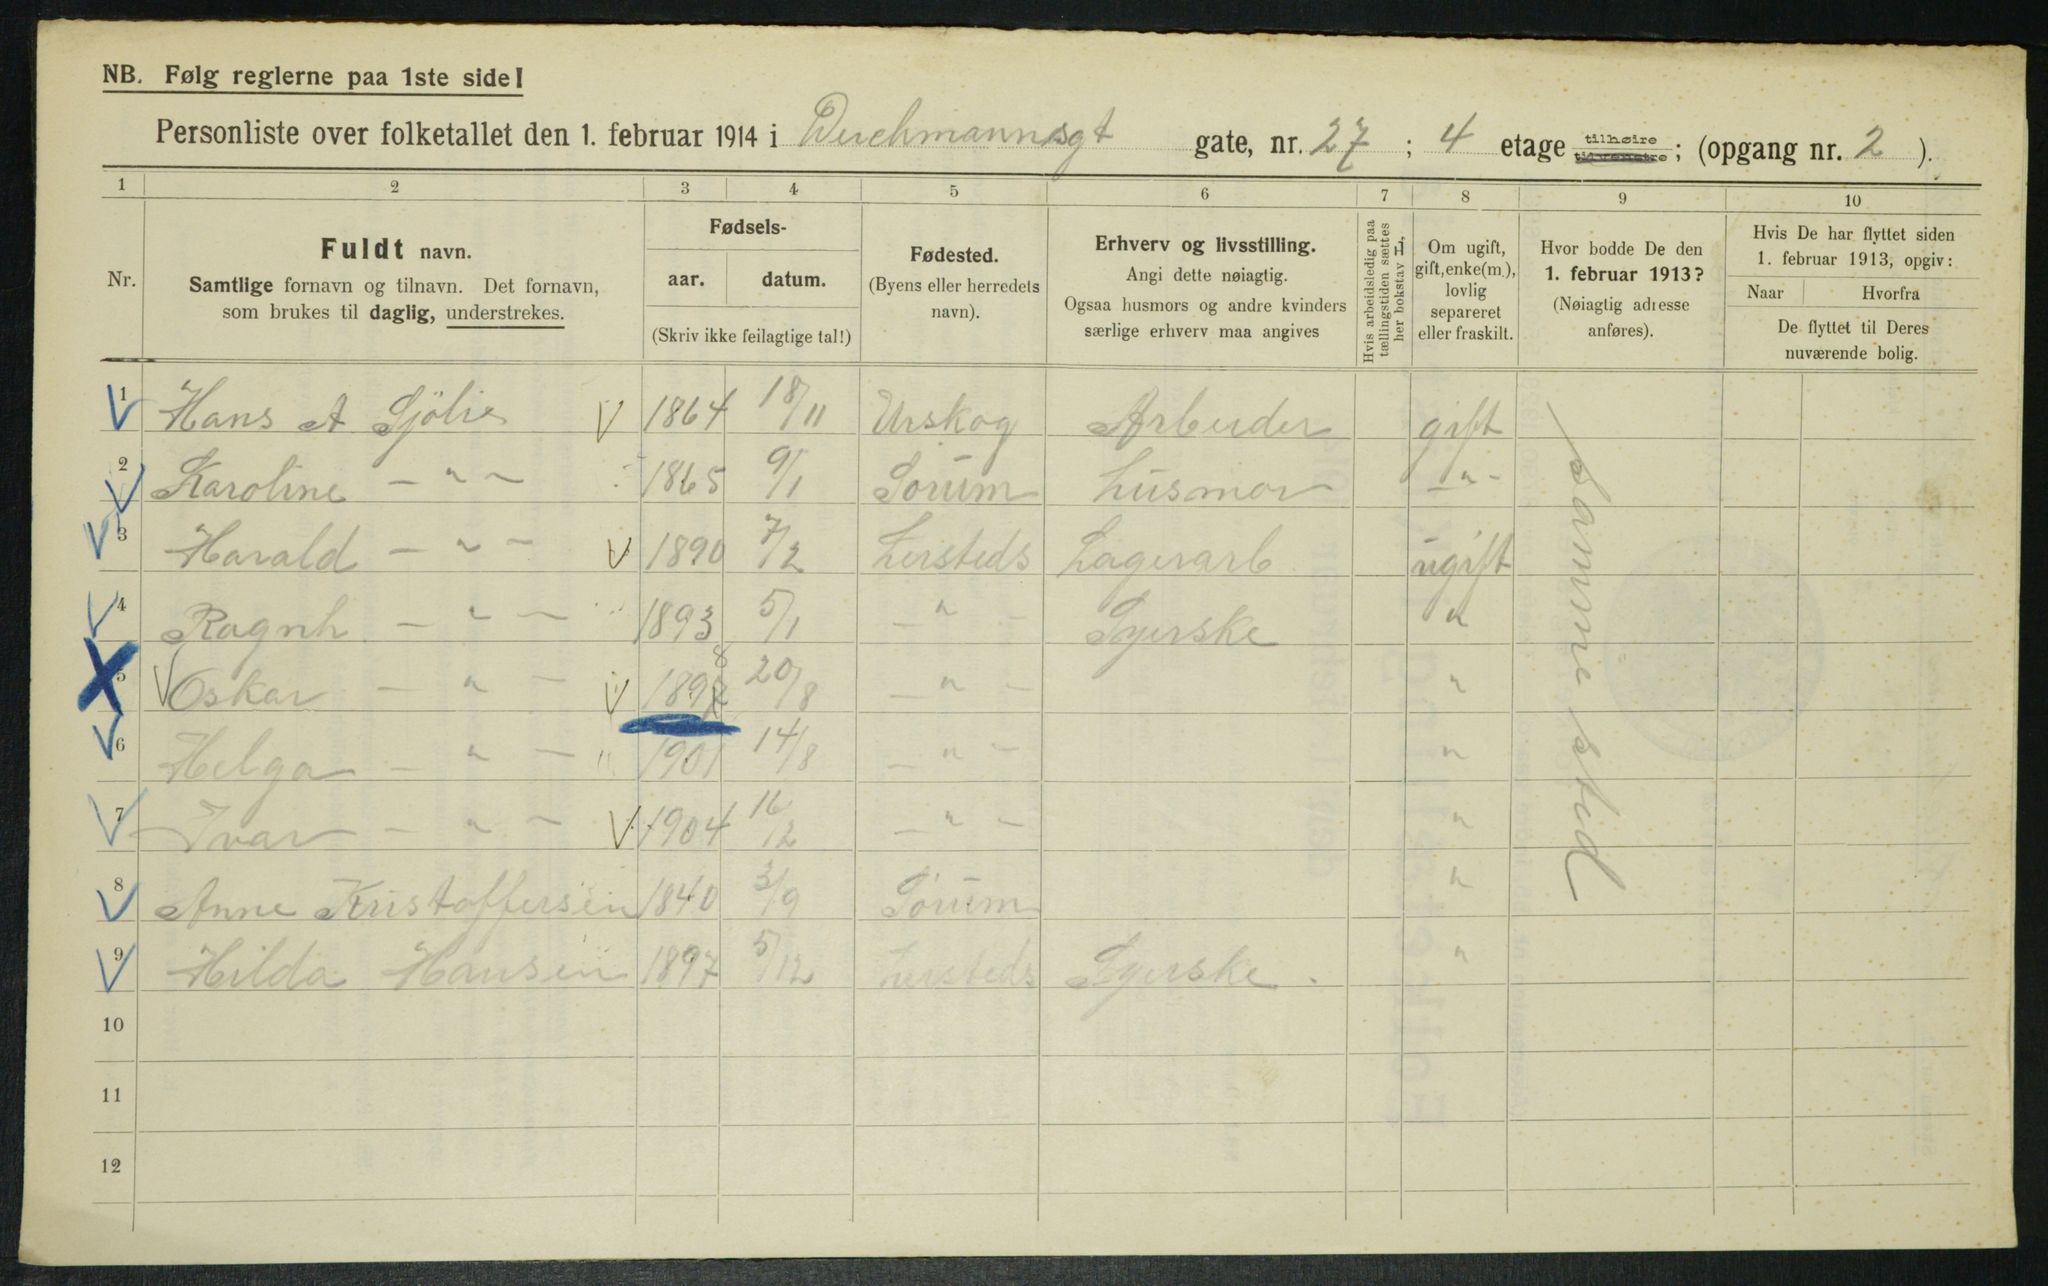 NB. Følg reglerne paa 1ste side!
Personliste over folketallet den 1. februar 1914 i Deichmannsgt gate, nr. 27 ; 4 etage tilhøire tilvenstre ; (opgang nr. 2 ).
1 2 3 4 5 6 7 8 9 10
Nr.
Fuldt navn.
Samtlige fornavn og tilnavn. Det fornavn,
som brukes til daglig, understrekes.
Fødsels-
aar. datum.
(Skriv ikke feilagtige tal!)
Fødested.
(Byens eller herredets
navn).
Erhverv og livsstilling.
Angi dette nøiagtig.
Ogsaa husmors og andre kvinders
særlige erhverv maa angives
Hvis arbeidsledig paa
tællingstiden sættes
her bokstav L.
Om ugift,
gift, enke(m.),
lovlig
separeret
eller fraskilt.
Hvor bodde De den
1. februar 1913?
(Nøiagtig adresse
anføres).
Hvis De har flyttet siden
1. februar 1913, opgiv:
Naar Hvorfra
De flyttet til Deres
nuværende bolig.
1 Hans A Sjölie 1864 18/11 Urskog Arbeider gift
2 Karoline — " — 1865 9/1 Sörum Husmor — " —
3 Harald — " — 1890 7/2 hersteds Lagerarb ugift
4 Ragnh — " — 1893 5/1 — " — Syerske "
5 Oskar — " — 1898 20/8 — " — "
6 Helga — " — 1901 14/8 — " — "
7 Ivar — " — 1904 16/2 — " — "
8 Anne Kristoffersen 1840 3/9 Sörum "
9 Hilda Hansen 1897 5/12 hersteds Syerske . "
Samme sted
10
11
12